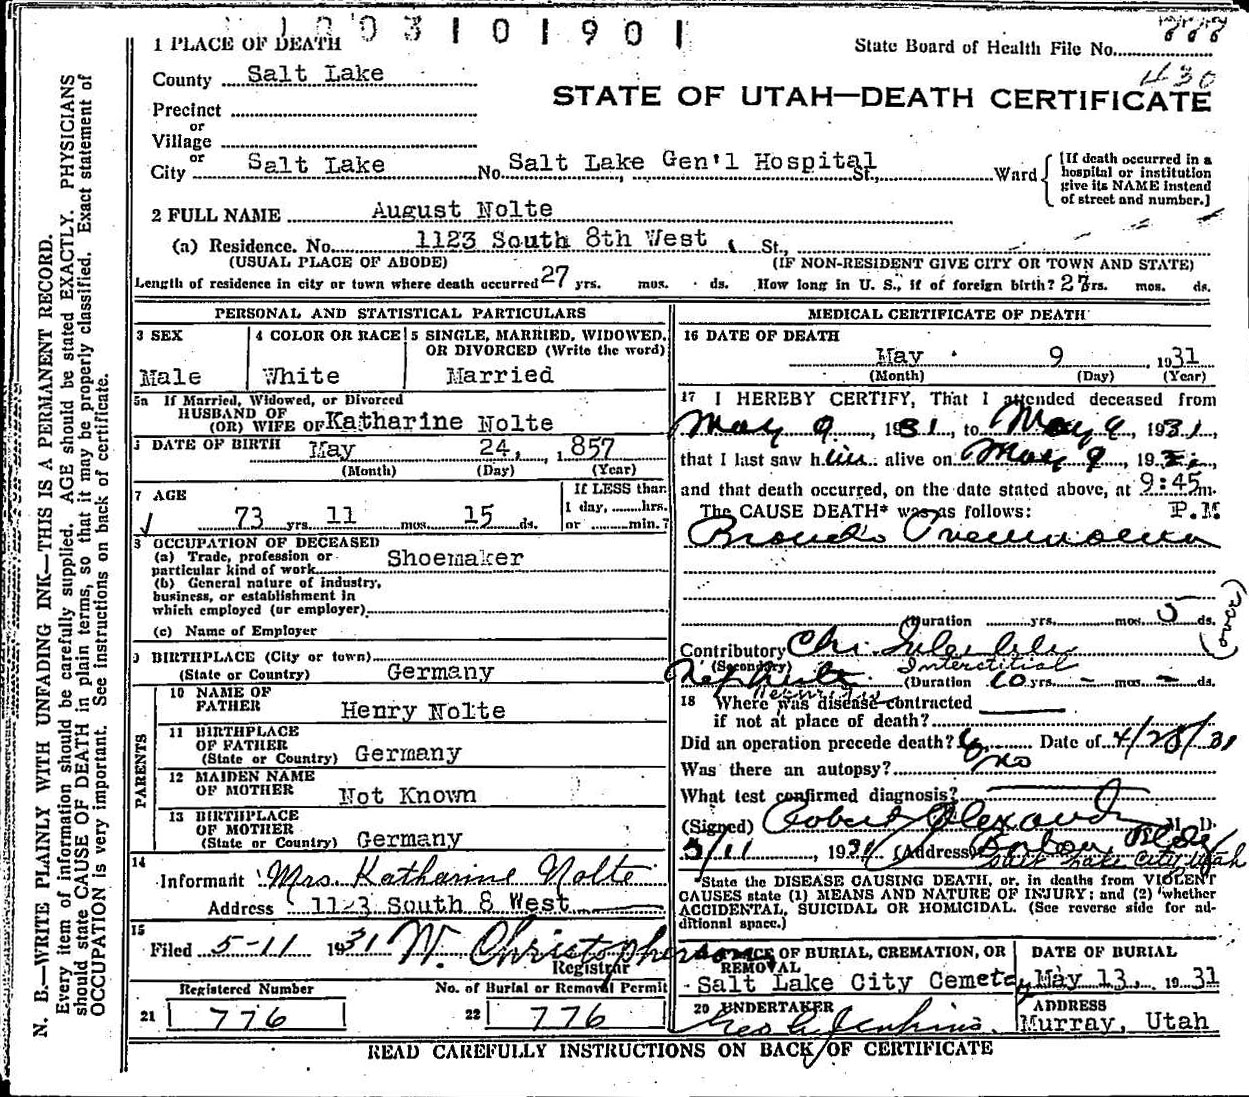 1003101901
1 PLACE OF DEATH
State Board of Health File No.
County Salt Lake
430
STATE OF UTAH—DEATH CERTIFICATE
Precinct
or
Village
or
City Salt Lake No. Salt Lake Gen'l Hospital St., Ward
[If death occurred in a
hospital or institution
give its NAME instead
of street and number.]
2 FULL NAME August Nolte
(a) Residence. No. 1123 South 8th West St.,
(USUAL PLACE OF ABODE) (IF NON-RESIDENT GIVE CITY OR TOWN AND STATE)
Length of residence in city or town where death occurred 27 yrs. mos. ds. How long in U. S., if of foreign birth? 27 yrs. mos. ds.
PERSONAL AND STATISTICAL PARTICULARS
3 SEX
Male
4 COLOR OR RACE
White
5 SINGLE, MARRIED, WIDOWED,
OR DIVORCED (Write the word)
Married
5a If Married, Widowed, or Divorced
HUSBAND OF
(OR) WIFE OF Katharine Nolte
DATE OF BIRTH May 24, 1857
(Month) (Day) (Year)
7 AGE
73 yrs. 11 mos. 15 ds.
If LESS than
1 day, hrs.
or min.?
8 OCCUPATION OF DECEASED
(a) Trade, profession or
particular kind of work Shoemaker
(b) General nature of industry,
business, or establishment in
which employed (or employer)
(c) Name of Employer
9 BIRTHPLACE (City or town)
(State or Country) Germany
PARENTS
10 NAME OF
FATHER Henry Nolte
11 BIRTHPLACE
OF FATHER
(State or Country) Germany
12 MAIDEN NAME
OF MOTHER Not Known
13 BIRTHPLACE
OF MOTHER
(State or Country) Germany
14
Informant Mrs. Katharine Nolte
Address 1123 South 8 West
15
Filed 5-11 1931 W. Christopherson
Registrar
Registered Number
21 776
No. of Burial or Removal Permit
22 776
MEDICAL CERTIFICATE OF DEATH
16 DATE OF DEATH
May 9 1931
(Month) (Day) (Year)
17 I HEREBY CERTIFY, That I attended deceased from
May 9, 1931, to May 9, 1931,
that I last saw him alive on May 9, 1931,
and that death occurred, on the date stated above, at 9:45 m.
The CAUSE DEATH* was as follows: P.M
Broncho Pneumonia
(Duration yrs. mos. 5 ds.
(over)
Contributory Chr.
(Secondary) Interstitial
Nephritis (Duration 10 yrs. - mos. - ds.
Nephritis
18 Where was disease contracted
if not at place of death?
Did an operation precede death? Date of 4/28/31
Was there an autopsy? No
What test confirmed diagnosis?
(Signed) Robert Alexander M. D.
5/11, 1931 (Address) Boston Bldg
Salt Lake City Utah
*State the DISEASE CAUSING DEATH, or, in deaths from VIOLENT
CAUSES state (1) MEANS AND NATURE OF INJURY; and (2) whether
ACCIDENTAL, SUICIDAL OR HOMICIDAL. (See reverse side for ad-
ditional space.)
PLACE OF BURIAL, CREMATION, OR
REMOVAL
Salt Lake City Cemetey
DATE OF BURIAL
May 13, 1931
20 UNDERTAKER
Geo G Jenkins
ADDRESS
Murray, Utah
READ CAREFULLY INSTRUCTIONS ON BACK OF CERTIFICATE
N. B.—WRITE PLAINLY WITH UNFADING INK—THIS IS A PERMANENT RECORD.
Every item of information should be carefully supplied. AGE should be stated EXACTLY. PHYSICIANS
should state CAUSE OF DEATH in plain terms, so that it may be properly classified. Exact statement of
OCCUPATION is very important. See instructions on back of certificate.